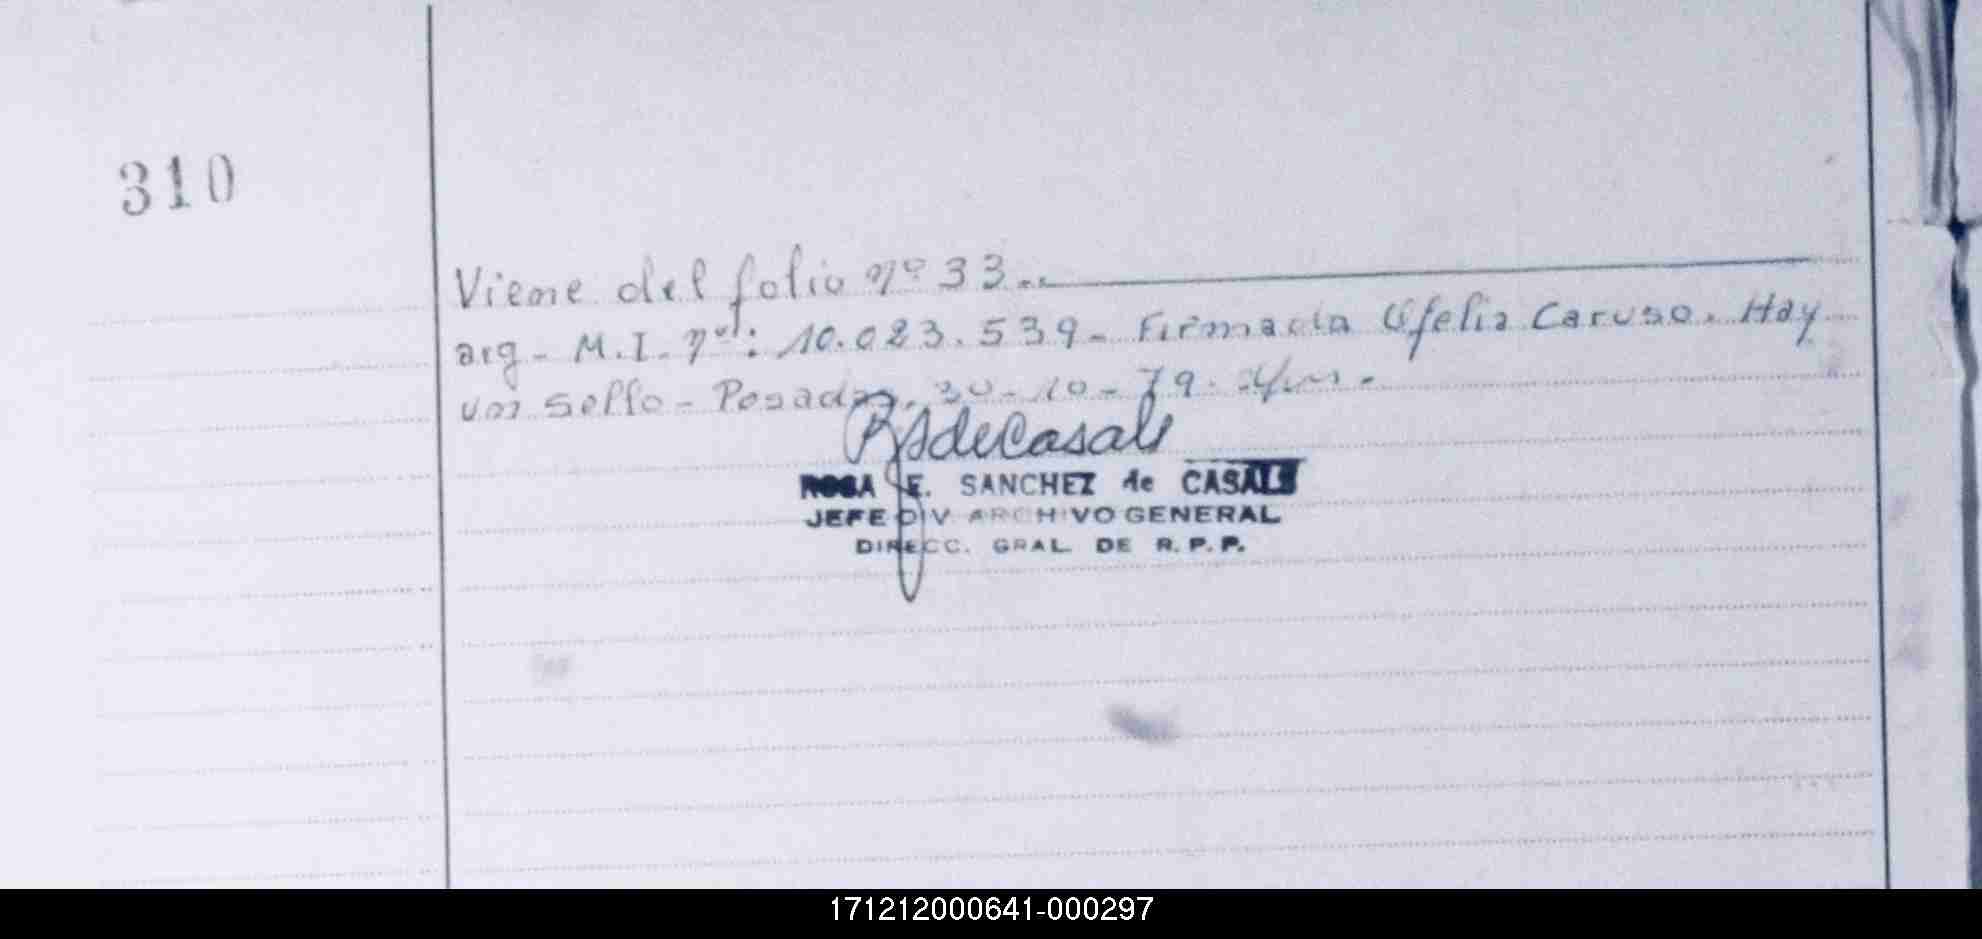 310
Viene del folio nº 33..
arg - M.I. nº: 10.023.539 - Firmada Ofelia Caruso. Hay
un sello - Posadas, 30-10-79.
RSdeCasals
ROSA E. SANCHEZ de CASALS
JEFE DIV. ARCHIVO GENERAL
DIRECC. GRAL. DE R.P.P.
171212000641-000297